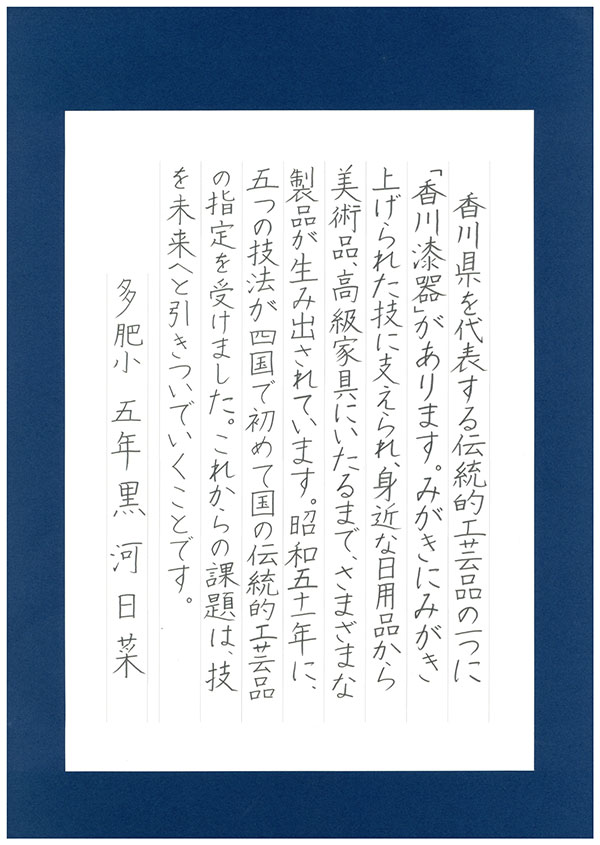 香川県を代表する伝統的工芸品の一つに
「香川漆器」があります。みがきにみがき
上げられた技に支えられ、身近な日用品から
美術品、高級家具にいたるまで、さまざまな
製品が生み出されています。昭和五十一年に、
五つの技法が四国で初めて国の伝統的工芸品
の指定を受けました。これからの課題は、技
を未来へと引きついでいくことです。
多肥小 五年 黒河日菜